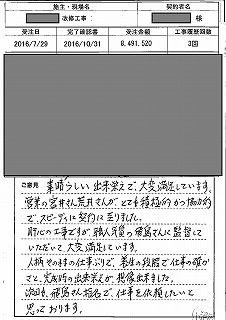 施主・現場名 契約者名
改修工事: 様
受注日 完了確認書 受注金額 工事履歴回数
2016/7/29 2016/10/31 8,491,520 3回
ご意見 素晴らしい出来栄えで、大変満足しています。
営業の宮井さん荒井さんが、とても積極的かつ協力的
で、スピーディに契約に至りました。
肝心の工事ですが、職人気質の飛鳥さんに監督して
いただいて、大変満足しています。
人柄そのままの仕事ぶりで、着注の段階で仕事の確か
さと、完成時の出来栄えが、想像出来ました。
次回も、飛鳥さん指名で、仕事を依頼したいと
思っております。